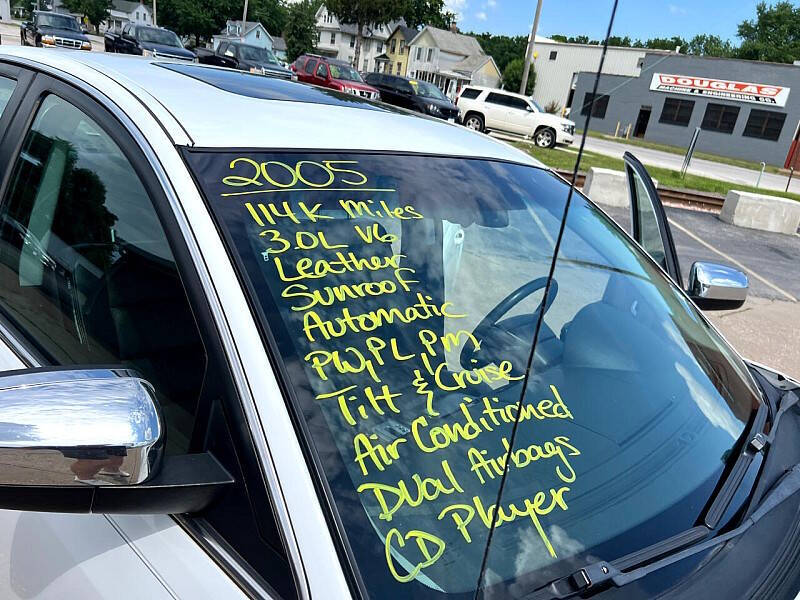 DOUGLAS
MACHINE & ENGINEERING CO.
2005
114K Miles
3.0L V6
Leather
Sunroof
Automatic
PW, PL, PM
Tilt & Cruise
Air Conditioned
Dual Airbags
CD Player